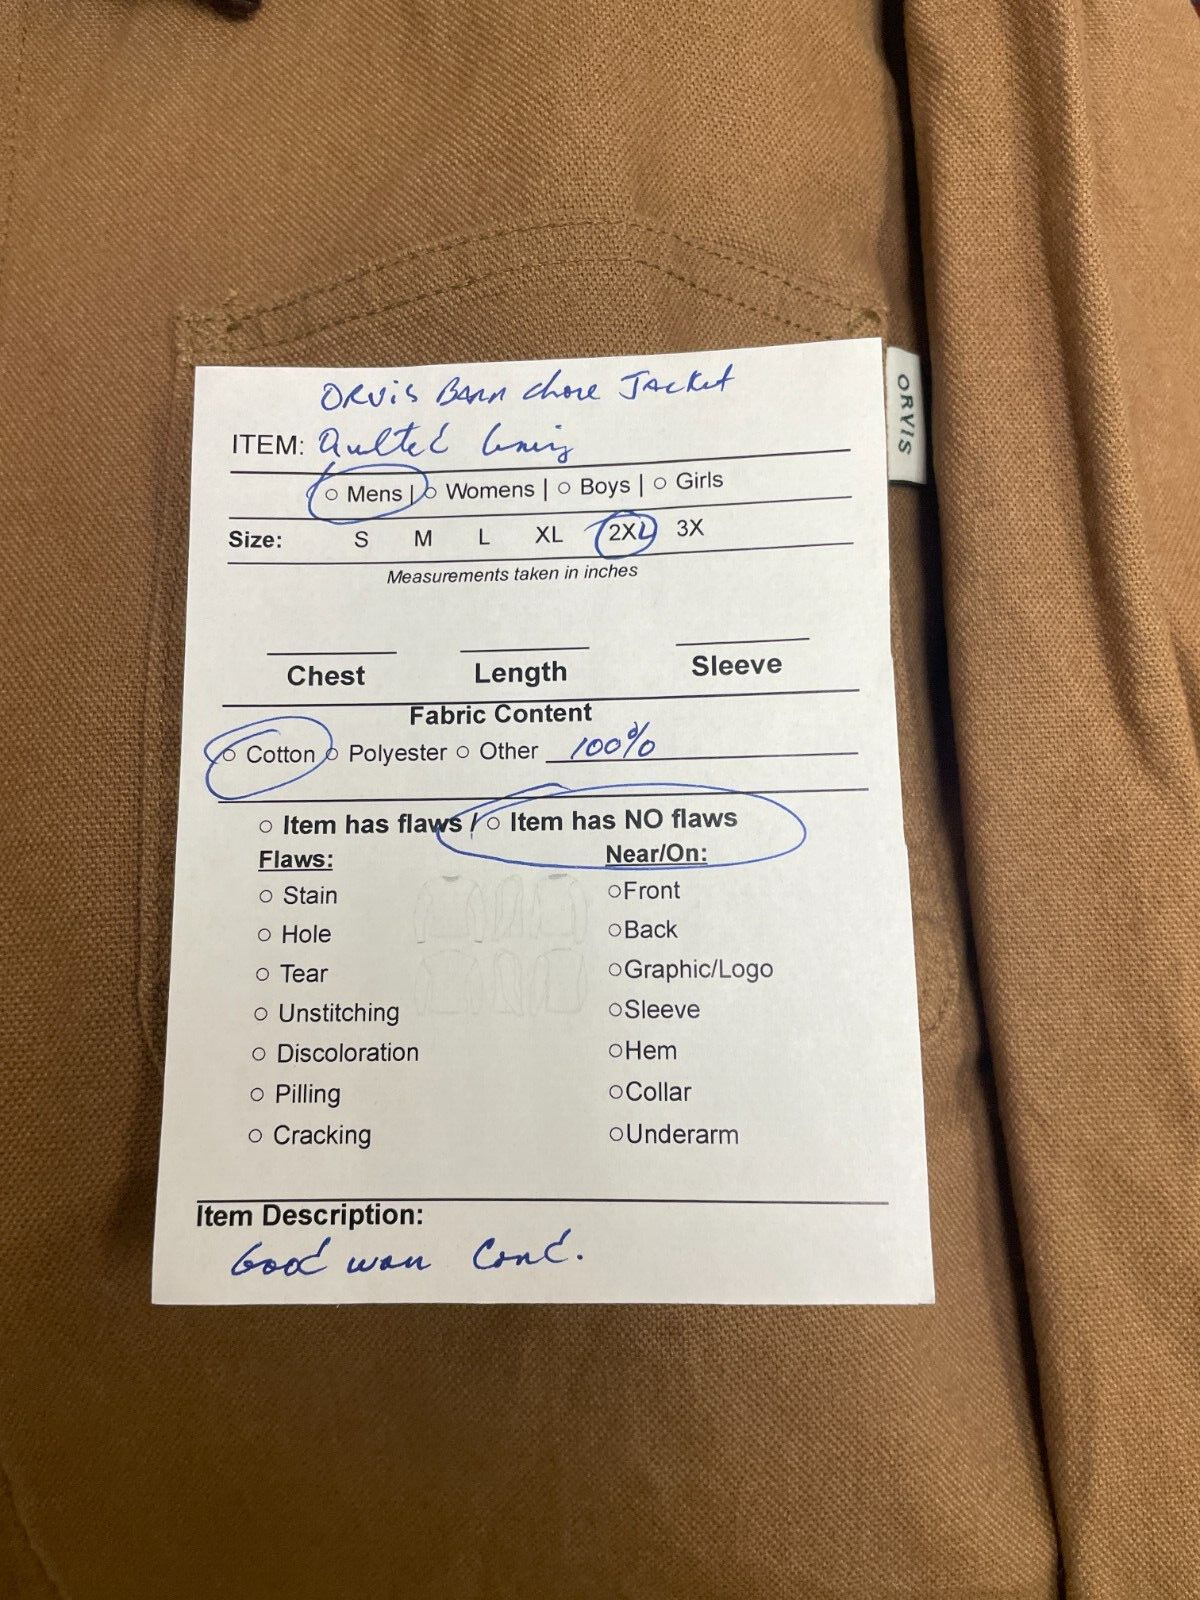 ORVIS BARN chore JACKET
ITEM: Quilted lining
○ Mens | ○ Womens | ○ Boys | ○ Girls
Size: S M L XL 2XL 3X
Measurements taken in inches
Chest Length Sleeve
Fabric Content
○ Cotton ○ Polyester ○ Other 100%
○ Item has flaws / ○ Item has NO flaws
Flaws: Near/On:
○ Stain ○Front
○ Hole ○Back
○ Tear ○Graphic/Logo
○ Unstitching ○Sleeve
○ Discoloration ○Hem
○ Pilling ○Collar
○ Cracking ○Underarm
Item Description:
Good worn Cond.
ORVIS